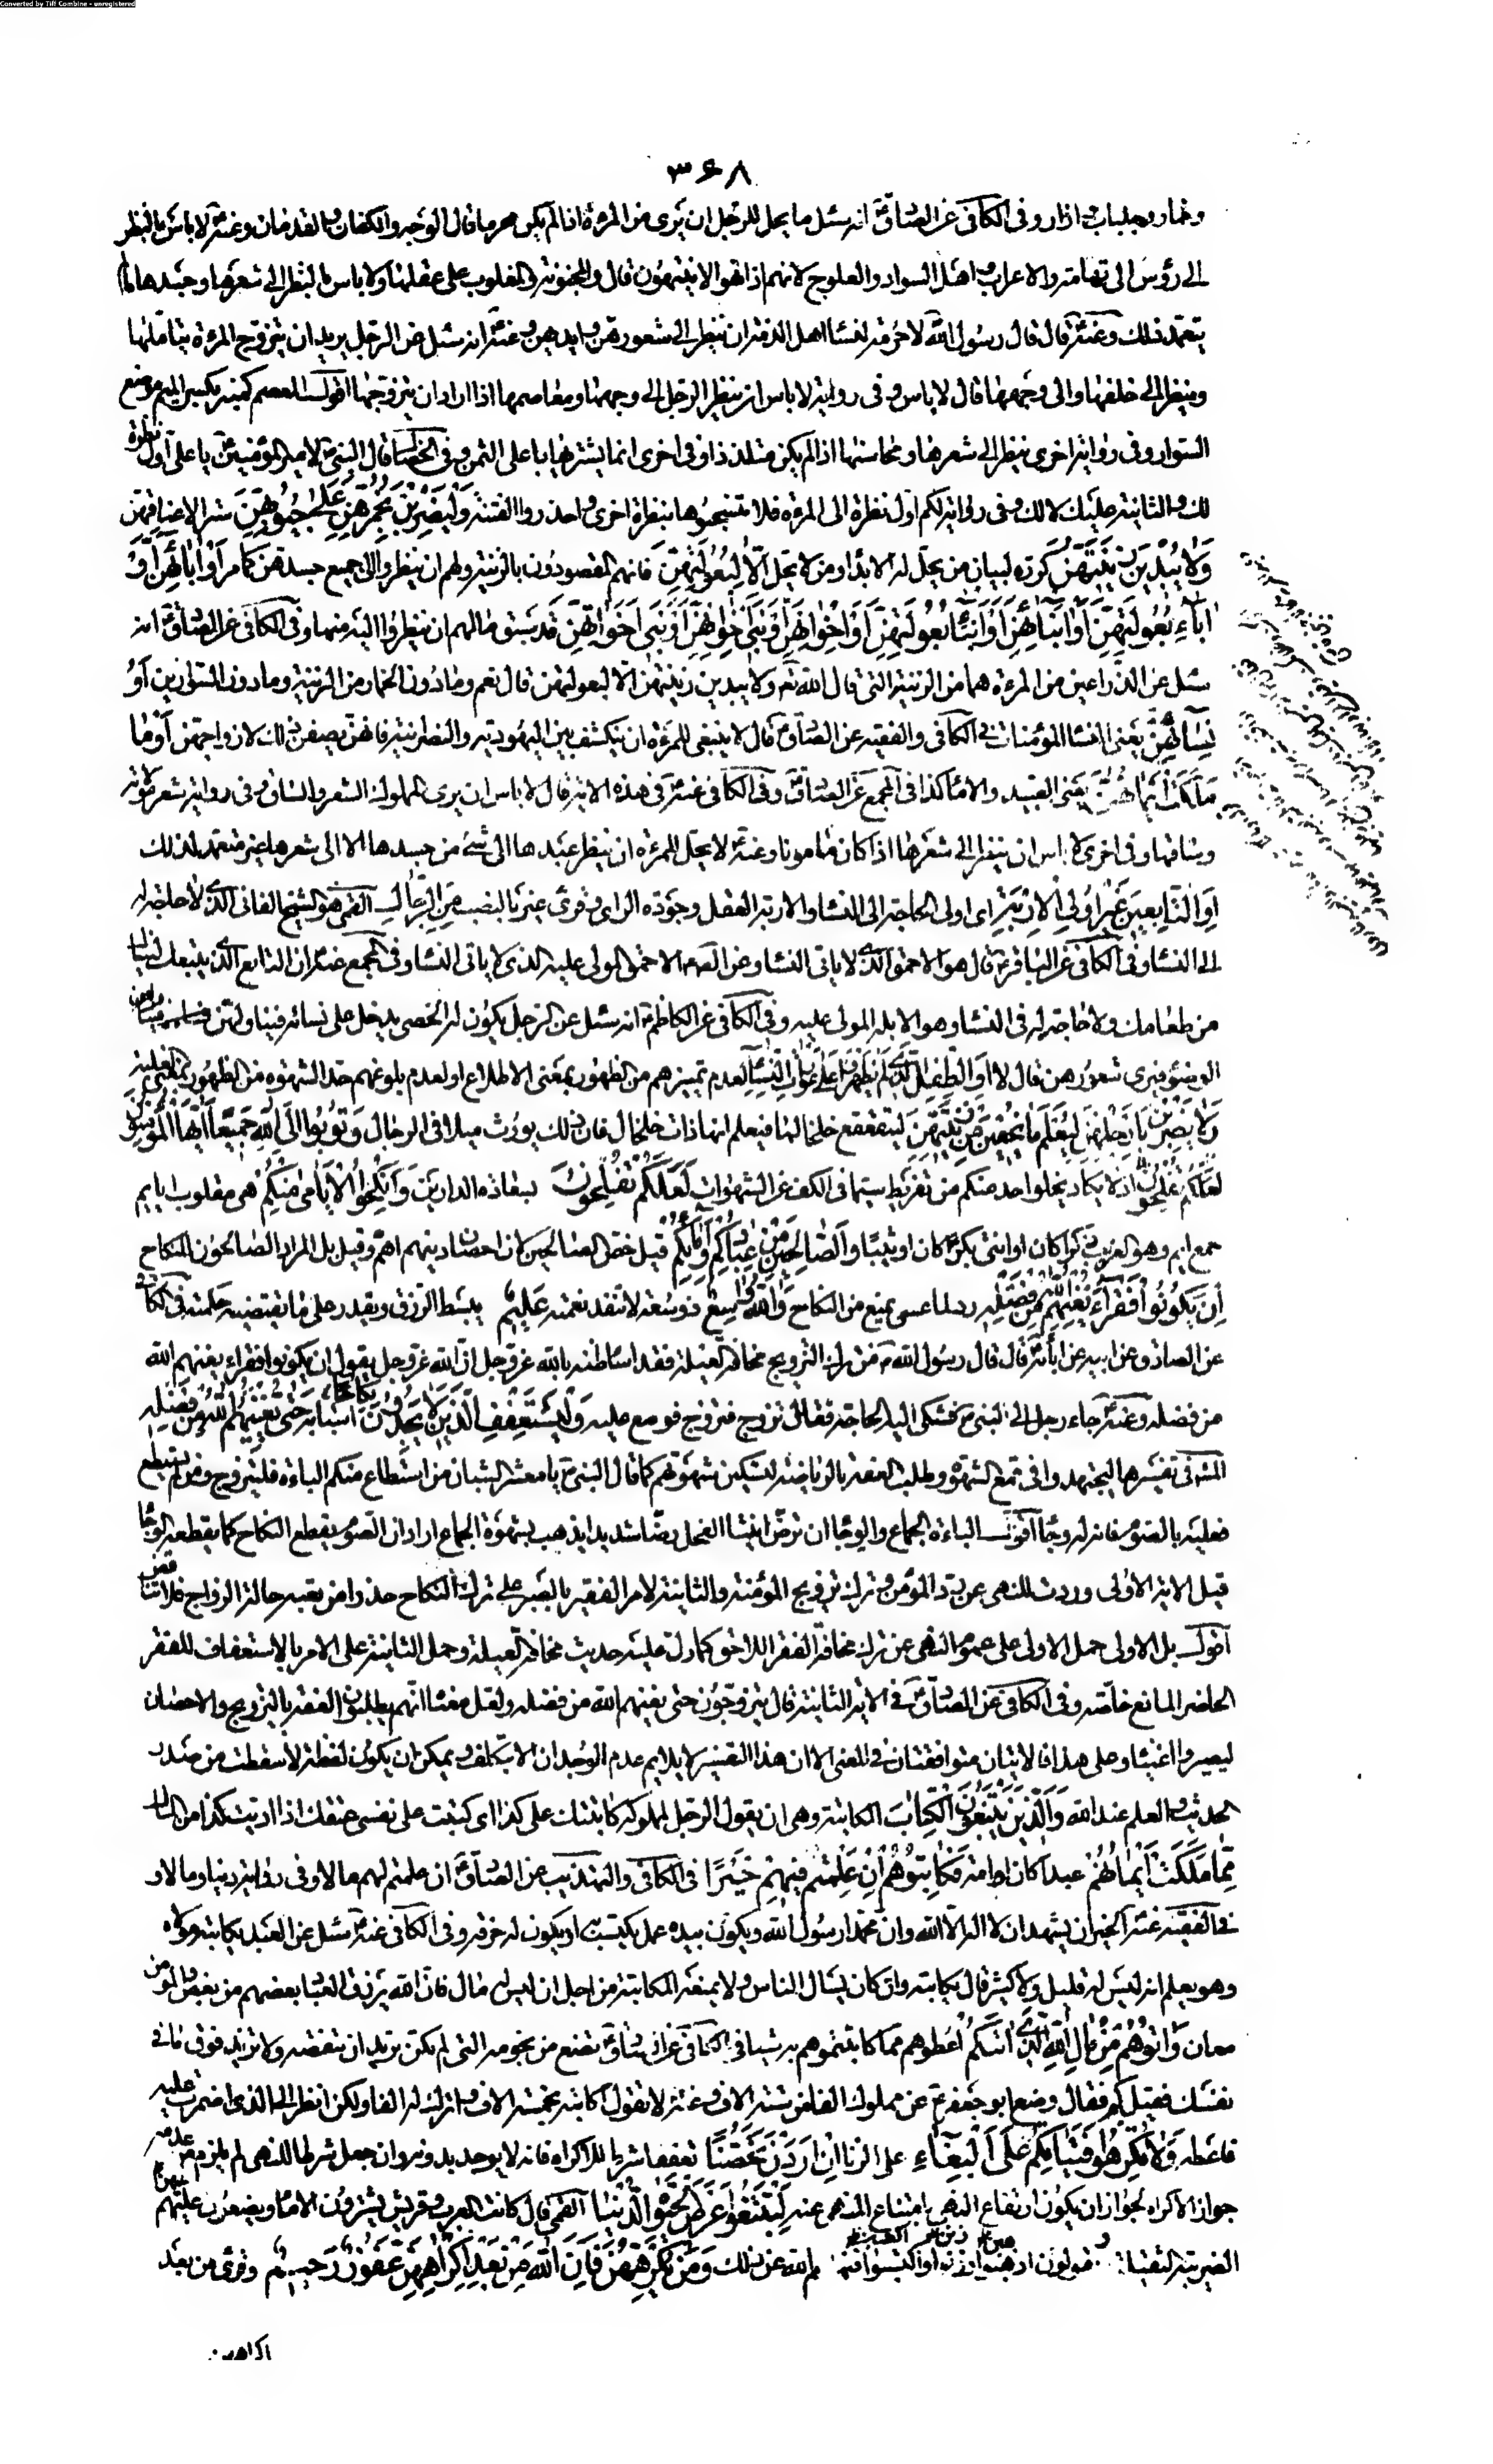 Converted by Tiff Combine - unregistered
۳۶۸
وخمار وجلباب وازار وفى الكافى عن الصادق انه سئل ما يحل للرجل ان يرى من المرءة اذا لم يكن محرما قال الوجه والكفان والقدمان وعنه لا باس بالنظر
الى رؤس اهل تهامة والاعراب واهل السواد والعلوج لانهم اذا نهوا لا ينتهون قال والمجنونة والمغلوب على عقلها ولا باس بالنظر الى شعرها وجسدها ما لم
يتعمد ذلك وعنه قال قال رسول الله لا حرمة لنساء اهل الذمة ان ينظر الى شعورهن وايديهن وعنه انه سئل عن الرجل يريد ان يتزوج المرءة يتاملها
وينظر الى خلفها والى وجهها قال لا باس وفى رواية لا باس ان ينظر الرجل الى وجهها ومعاصمها اذا اراد ان يتزوجها اقول المعصم كمنبر بكسر الميم موضع
السوار وفى رواية اخرى ينظر الى شعرها ومحاسنها اذا لم يكن متلذذا وفى اخرى انما يشتريها باعلى الثمن وفى الخصال قال النبى لامير المؤمنين يا على اول نظرة
لك والثانية عليك لا لك وفى رواية لكم اول نظرة الى المرءة فلا تتبعوها بنظرة اخرى واحذروا الفتنة وليضربن بخمرهن على جيوبهن سترا لاعناقهن
ولا يبدين زينتهن كرره لبيان من يحل له الابداء ومن لا يحل الا لبعولتهن فانهم المقصودون بالزينة ولهم ان ينظروا الى جميع جسدهن كما مر او ابائهن او
اباء بعولتهن او ابنائهن او ابناء بعولتهن او اخوانهن او بنى اخوانهن او بنى اخواتهن قد سبق ما لهم ان ينظروا اليه منها وفى الكافى عن الصادق انه
سئل عن الذراعين من المرءة هما من الزينة التى قال الله تع ولا يبدين زينتهن الا لبعولتهن قال نعم وما دون الخمار من الزينة وما دون السوارين او
نسائهن يعنى النساء المؤمنات فى الكافى والفقيه عن الصادق قال لا ينبغى للمرءة ان ينكشف بين اليهودية والنصرانية فانهن يصفن ذلك لازواجهن او ما
ملكت ايمانهن يعنى العبيد والاماء كذا فى المجمع عن الصادق وفى الكافى عنه فى هذه الاية قال لا باس ان يرى المملوك الشعر والساق وفى رواية شعر مولاته
وساقها وفى اخرى لا باس ان ينظر الى شعرها اذا كان مامونا وعنه لا يحل للمرءة ان ينظر عبدها الى شىء من جسدها الا الى شعرها غير متعمد لذلك
او التابعين غير اولى الاربة اى اولى الحاجة الى النساء والاربة العقل وجودة الراى وقرئ غير بالنصب من الرجال القمى هو الشيخ الفانى الذى لا حاجة له
الى النساء وفى الكافى عن الباقر قال هو الاحمق الذى لا ياتى النساء وعن الصادق الاحمق المولى عليه الذى لا ياتى النساء وفى المجمع عنه ان التابع الذى يتبعك لينال
من طعامك ولا حاجة له فى النساء وهو الابله المولى عليه وفى الكافى عن الكاظم انه سئل عن الرجل يكون له الخصى يدخل على نسائه فيناولهن
الوضوء فيرى شعورهن قال لا او الطفل الذين لم يظهروا على عورات النساء لعدم تميزهم من الظهور بمعنى الاطلاع او لعدم بلوغهم حد الشهوة من الظهور بمعنى الغلبة
ولا يضربن بارجلهن ليعلم ما يخفين من زينتهن ليتقعقع خلخالها فيعلم انها ذات خلخال فان ذلك يورث ميلا فى الرجال وتوبوا الى الله جميعا ايها المؤمنون
لعلكم تفلحون اذ لا يكاد يخلو احد منكم من تفريط سيما فى الكف عن الشهوات لعلكم تفلحون بسعادة الدارين وانكحوا الايامى منكم هى مقلوب ايايم
جمع ايم وهو العزب ذكرا كان او انثى بكرا كان او ثيبا والصالحين من عبادكم وامائكم قيل خص الصالحين لان احصان دينهم اهم وقيل بل المراد الصالحون للنكاح
ان يكونوا فقراء يغنهم الله من فضله رد لما عسى يمنع من النكاح والله واسع ذو سعة لا تنفد نعمته عليم يبسط الرزق ويقدر على ما يقتضيه حكمته فى الكافى
عن الصادق عن ابيه عن ابائه قال قال رسول الله من ترك التزويج مخافة العيلة فقد اساء ظنه بالله عز وجل ان الله عز وجل يقول ان يكونوا فقراء يغنهم الله
من فضله وعنه جاء رجل الى النبى فشكى اليه الحاجة فقال تزوج فتزوج فوسع عليه وليستعفف الذين لا يجدون نكاحا اسبابه حتى يغنيهم الله من فضله
المشهور فى تفسيرها ليجتهدوا فى قمع الشهوة وطلب العفة بالرياضة لتسكين شهوتهم كما قال النبى يا معشر الشبان من استطاع منكم الباءة فليتزوج ومن لم يستطع
فعليه بالصوم فانه له وجاء اقول الباءة الجماع والوجاء ان ترض انثيا الفحل رضا شديدا يذهب بشهوة الجماع اراد ان الصوم يقطع النكاح كما يقطعه الوجاء
قيل الاية الاولى وردت للنهى عن رد المؤمن وترك تزويج المؤمنة والثانية لامر الفقير بالصبر على ترك النكاح حذرا من تعبه حالة الزواج فلا تناقض
اقول بل الاولى حمل الاولى على عموم النهى عن تركه مخافة الفقر اللاحق كما دل عليه حديث مخافة العيلة وحمل الثانية على الامر بالاستعفاف للفقر
الحاضر المانع خاصة وفى الكافى عن الصادق فى الاية الثانية قال يتزوجون حتى يغنيهم الله من فضله ولعل معناه انهم يطلبون العفة بالتزويج والاحصان
ليصيروا اغنياء وعلى هذا فالايتان متوافقتان فى المعنى الا ان هذا التفسير لا يلايم عدم الوجدان الا بتكلف ويمكن ان يكون لفظة لا سقطت من صدر
الحديث والعلم عند الله والذين يبتغون الكتاب المكاتبة وهى ان يقول الرجل لمملوكه كاتبتك على كذا اى كتبت على نفسى عتقك اذا اديت كذا من المال
مما ملكت ايمانكم عبدا كان او امة فكاتبوهم ان علمتم فيهم خيرا فى الكافى والتهذيب عن الصادق ان علمتم لهم مالا وفى رواية دينا ومالا و
فى الفقيه عنه الخير ان يشهد ان لا اله الا الله وان محمدا رسول الله ويكون بيده عمل يكتسب به او يكون له حرفة وفى الكافى عنه سئل عن العبد يكاتبه مولاه
وهو يعلم انه ليس له قليل ولا كثير قال يكاتبه وان كان يسال الناس ولا يمنعه المكاتبة من اجل ان ليس له مال فان الله يرزق العباد بعضهم من بعض والمؤمن
معان واتوهم من مال الله الذى اتيكم اعطوهم مما كاتبتموهم به شيئا فى الكافى عن الصادق تضع من نجومه التى لم تكن تريد ان تنقصه ولا تزيد فوق ما فى
نفسك فقيل كم فقال وضع ابو جعفر عن مملوك الفا من ستة الاف وعنه لا تقول اكاتبه بخمسة الاف واترك له الفا ولكن انظر الى الذى اضمرت عليه
فاعطه ولا تكرهوا فتياتكم على البغاء على الزنا ان اردن تحصنا تعففا شرط للاكراه فانه لا يوجد بدونه وان جعل شرطا للنهى لم يلزم من عدمه
جواز الاكراه لجواز ان يكون ارتفاع النهى بامتناع المنهى عنه لتبتغوا عرض الحيوة الدنيا القمى قال كانت العرب وقريش يشترون الاماء ويضعون عليهم
الضريبة الثقيلة ويقولون اذهبوا وازنوا واكتسبوا فنهاهم الله عن ذلك ومن يكرههن فان الله من بعد اكراههن غفور رحيم وقرئ من بعد
اكراههن